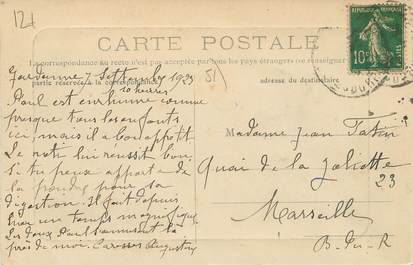 12t
CARTE POSTALE
La correspondance au recto n'est pas acceptée par tous les pays étrangers
partie réservée à la correspondance
adresse du destinataire
RÉPUBLIQUE FRANÇAISE
10c
POSTES
Gardanne 7 Septembre 1923
10 heures
51
Paul est enrhumé comme
presque tous les enfants
ici mais il a bon appétit
Le rôti lui réussit bien
si tu peux apporte de
la poudre pour sa
digestion. Il fait depuis
hier un temps magnifique
Les deux Paul s'amusent là
près de moi. Caresses Augustine
Madame Jean Tatin
Quai de la Joliette
23
Marseille
B. du R.